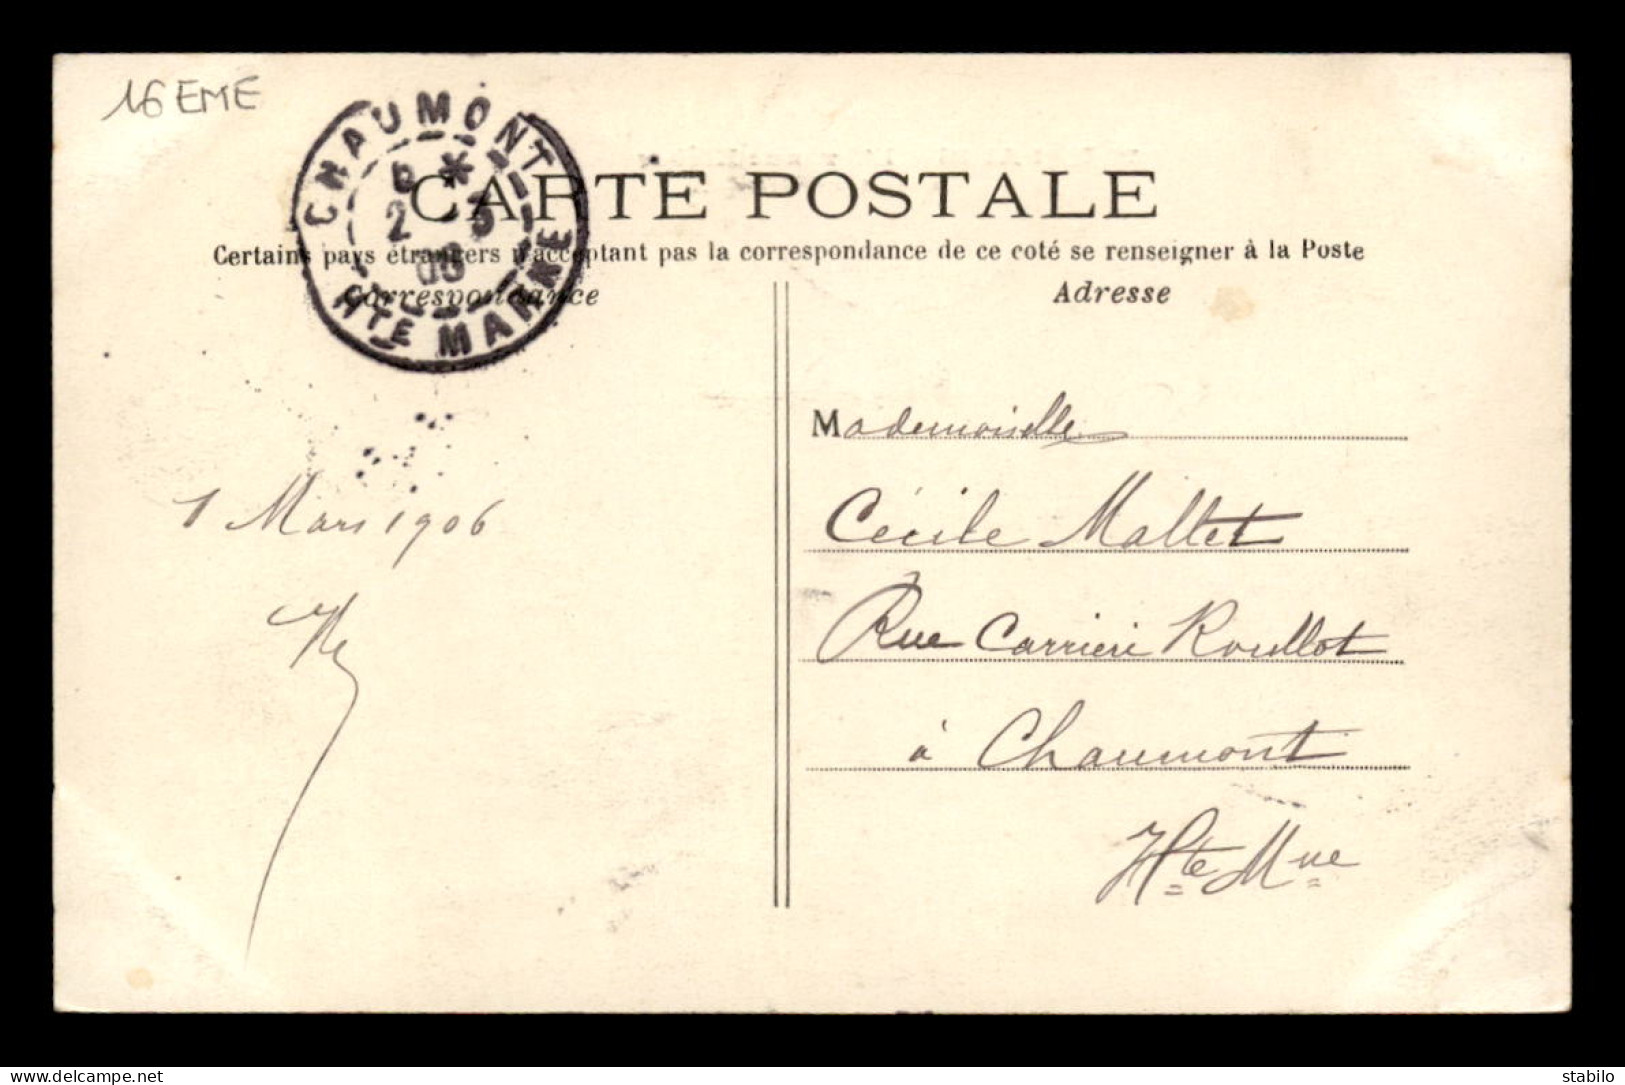 16 EME
CHAUMONT
6 *
2 3
06
HTE MARNE
CARTE POSTALE
Certains pays étrangers n'acceptant pas la correspondance de ce coté se renseigner à la Poste
Correspondance
Adresse
1 Mars 1906
Mademoiselle
Cécile Mallet
Rue Carrière Roullot
à Chaumont
Hte Mne
stabilo